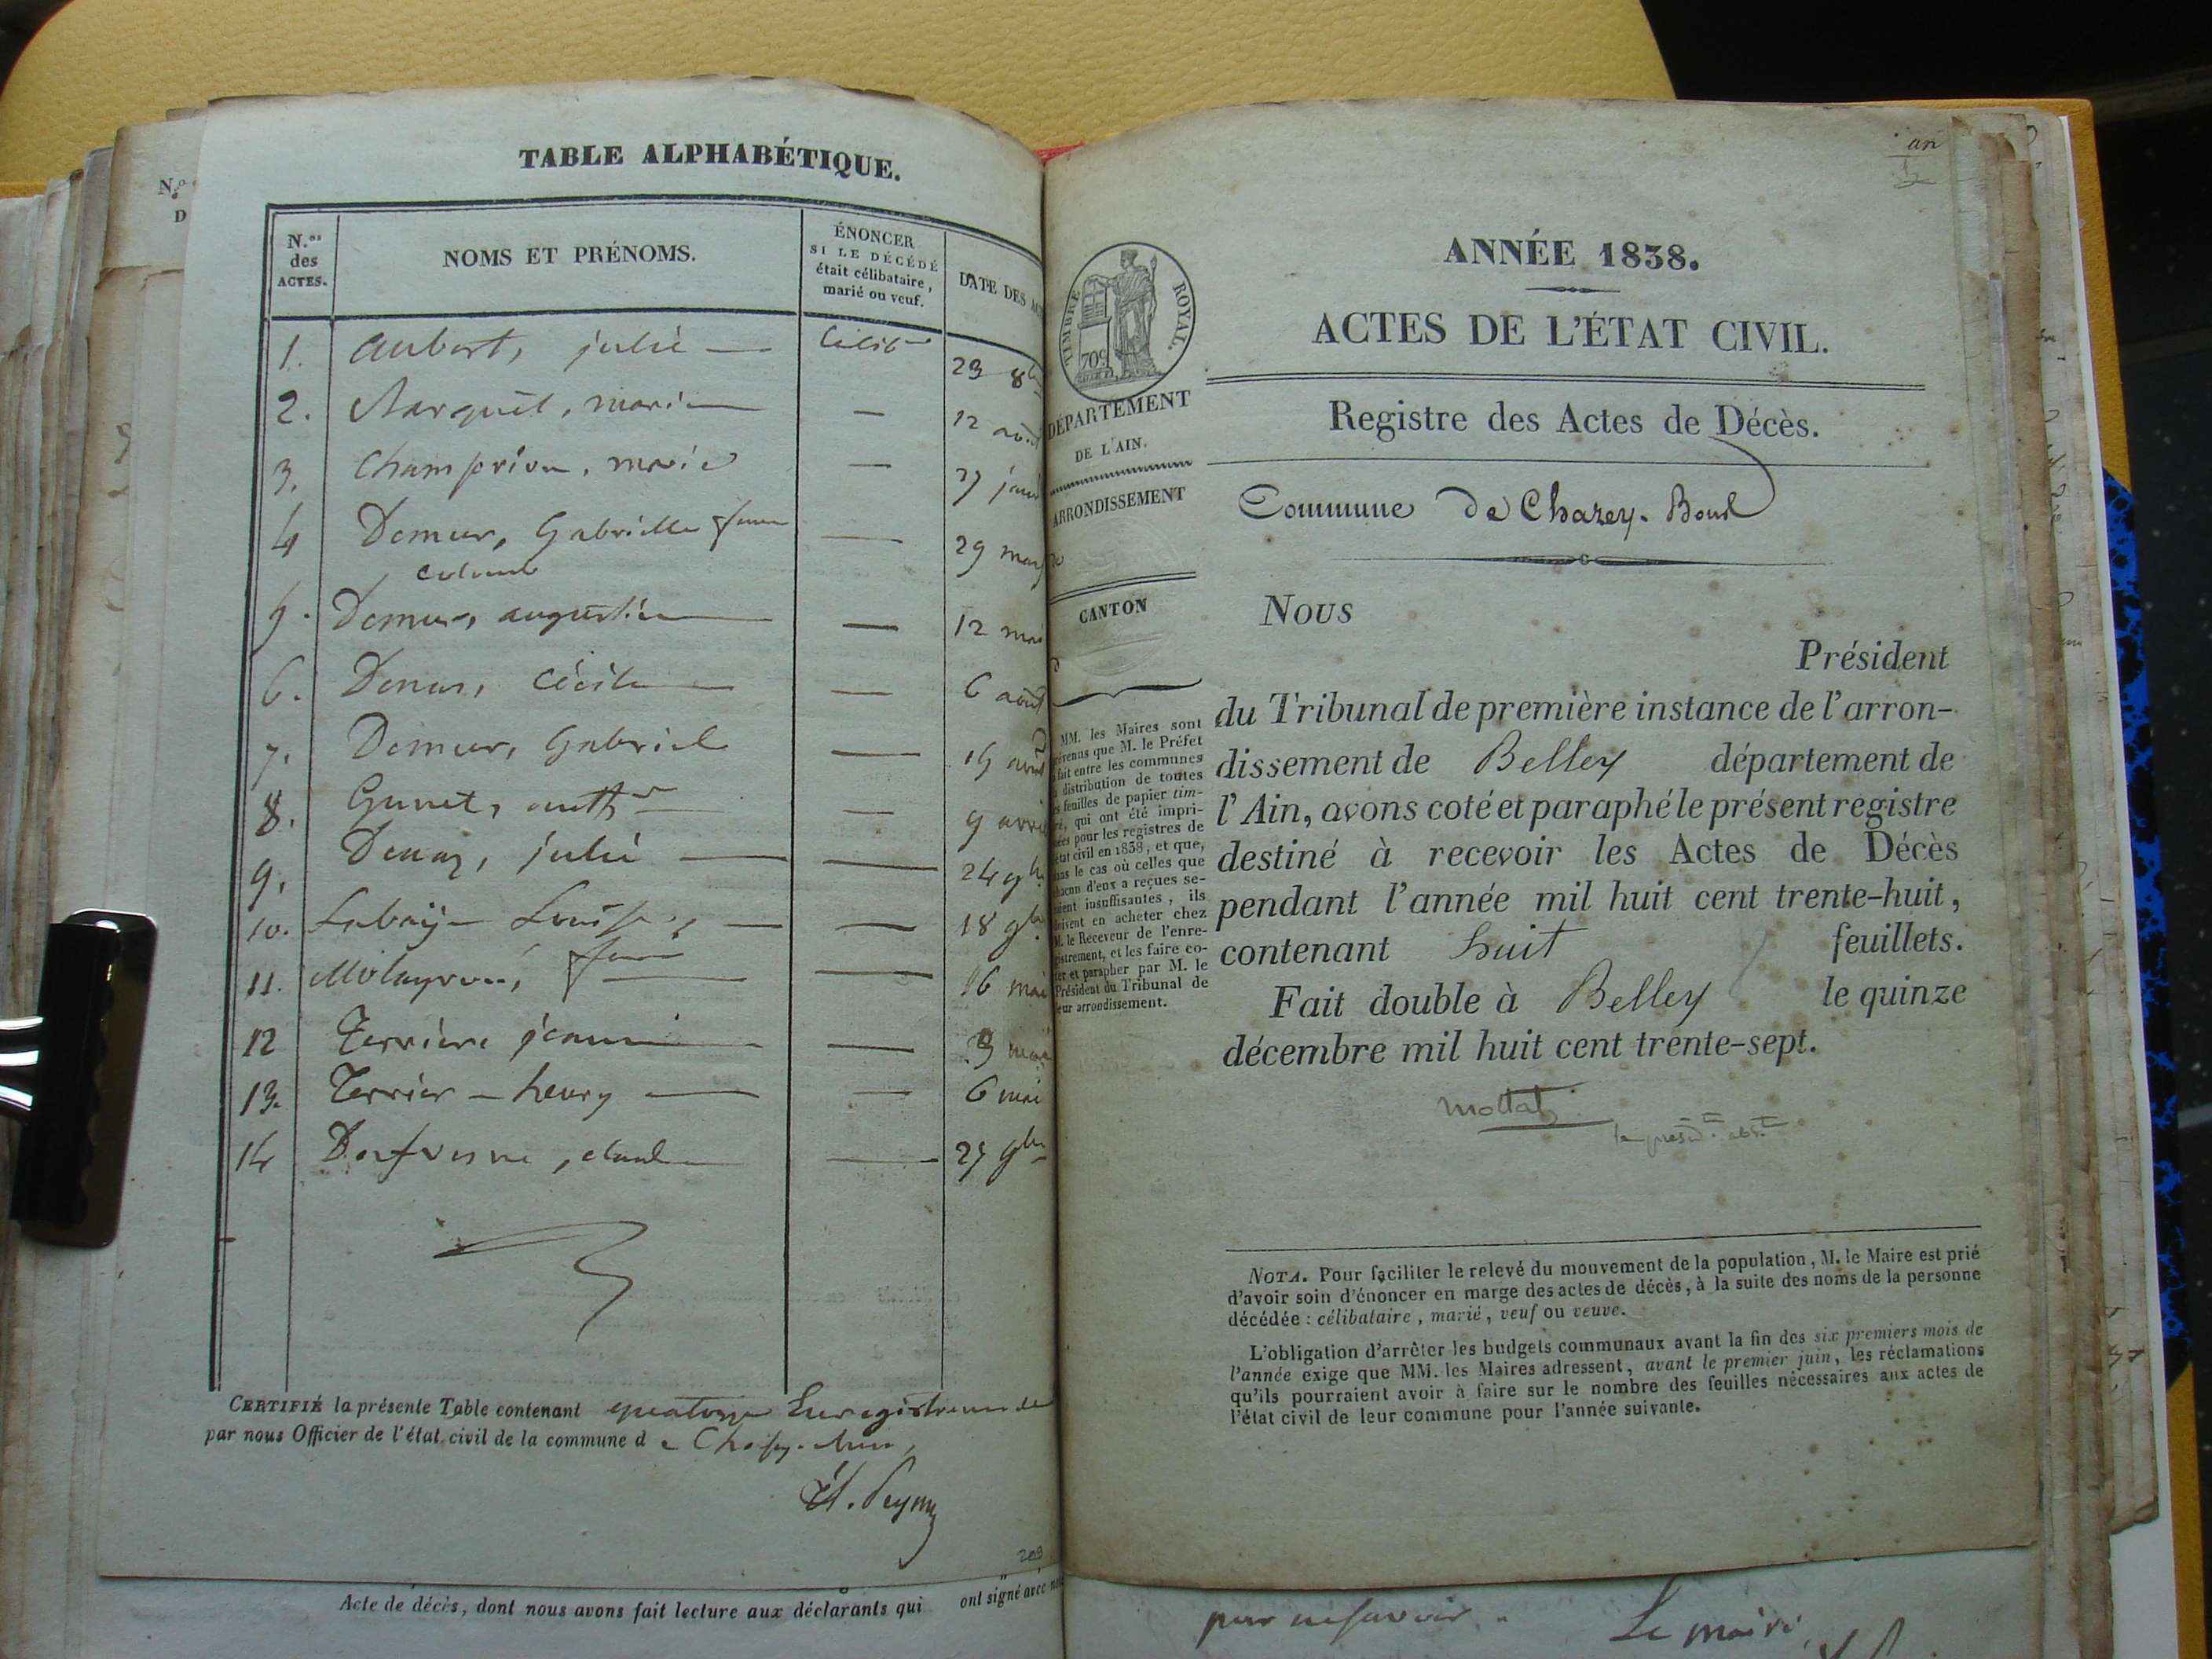 TABLE ALPHABÉTIQUE.
N.os des ACTES.
NOMS ET PRÉNOMS.
ÉNONCER SI LE DÉCÉDÉ était célibataire, marié ou veuf.
DATE DES
1. aubert, julie — Celib 23 8
2. marie — — 12 août
3. marie — 27
4 Demur, Gabrielle — 29
5. Demur, augustin — — 12 mai
6. Demur, Cécile — — 6 août
7. Demur, Gabriel — 19
8. — 9
9. julie — — 24 9
10. Louise — — 18 9
11. — — 16 mai
12 Terrier — — 3
13. Terrier — henry — — 6 mai
14 — 27 9
CERTIFIÉ la présente Table contenant quatorze Enregistrement
par nous Officier de l'état civil de la commune d e
209
Acte de décès, dont nous avons fait lecture aux déclarants qui ont signé avec
N.o
D
an
TIMBRE ROYAL.
709
DÉPARTEMENT
DE L'AIN.
ARRONDISSEMENT
CANTON
MM. les Maires sont
prévenus que M. le Préfet
fait entre les communes
distribution de toutes
feuilles de papier tim-
qui ont été impri-
pour les registres de
état civil en 1838, et que,
dans le cas où celles que
chacun d'eux a reçues se-
raient insuffisantes, ils
doivent en acheter chez
M. le Receveur de l'enre-
gistrement, et les faire co-
ter et parapher par M. le
Président du Tribunal de
leur arrondissement.
ANNÉE 1838.
ACTES DE L'ÉTAT CIVIL.
Registre des Actes de Décès.
Commune de Chazey-Bons
Nous
Président
du Tribunal de première instance de l'arron-
dissement de Belley département de
l'Ain, avons coté et paraphé le présent registre
destiné à recevoir les Actes de Décès
pendant l'année mil huit cent trente-huit,
contenant huit feuillets.
Fait double à Belley le quinze
décembre mil huit cent trente-sept.
NOTA. Pour faciliter le relevé du mouvement de la population, M. le Maire est prié
d'avoir soin d'énoncer en marge des actes de décès, à la suite des noms de la personne
décédée : célibataire, marié, veuf ou veuve.
L'obligation d'arrêter les budgets communaux avant la fin des six premiers mois de
l'année exige que MM. les Maires adressent, avant le premier juin, les réclamations
qu'ils pourraient avoir à faire sur le nombre des feuilles nécessaires aux actes de
l'état civil de leur commune pour l'année suivante.
Le maire